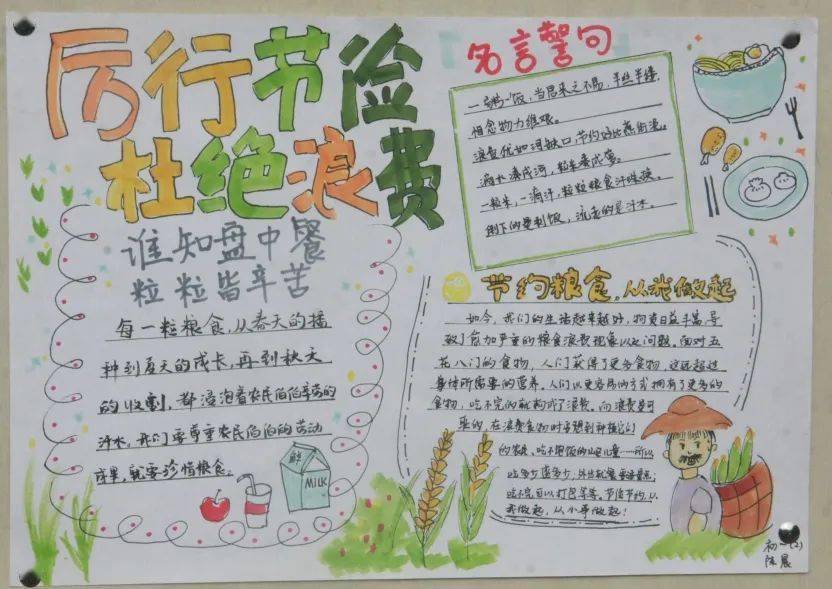 厉行节俭
杜绝浪费
谁知盘中餐
粒粒皆辛苦
每一粒粮食,从春天的播
种到夏天的成长,再到秋天
的收割,都浸泡着农民伯伯辛劳的
汗水,我们要尊重农民伯伯的劳动
成果,就要珍惜粮食。
鲜
MILK
名言警句
一粥一饭,当思来之不易,半丝半缕,
恒念物力维艰。
浪费犹如河缺口,节约好比燕衔泥。
滴水凑成河,粒米凑成箩。
一粒米,一滴汗,粒粒粮食汗珠换。
倒下的是剩饭,流走的是汗水。
节约粮食,从我做起
如今,我们的生活越来越好,物资日益丰富,导
致了愈加严重的粮食浪费现象以之问题,面对五
花八门的食物,人们获得了更多食物,这远超过
身体所需要的营养。人们以更容易的方式拥有了更多的
食物,吃不完的就构成了浪费。而浪费是可
耻的,在浪费食物时要想到种植它们
的农民,吃不饱饭的山区儿童……所以
吃多少盛多少,外出就餐要适量点;
吃不完可以打包等等,节俭节约,从
我做起,从小事做起!
初一(2)
陈晨